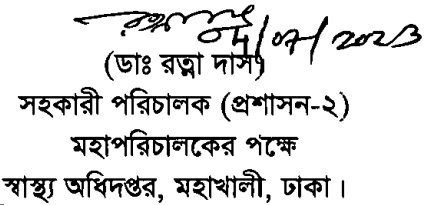 (ডাঃ রত্না দাস)
সহকারী পরিচালক (প্রশাসন-২)
মহাপরিচালকের পক্ষে
স্বাস্থ্য অধিদপ্তর, মহাখালী, ঢাকা।